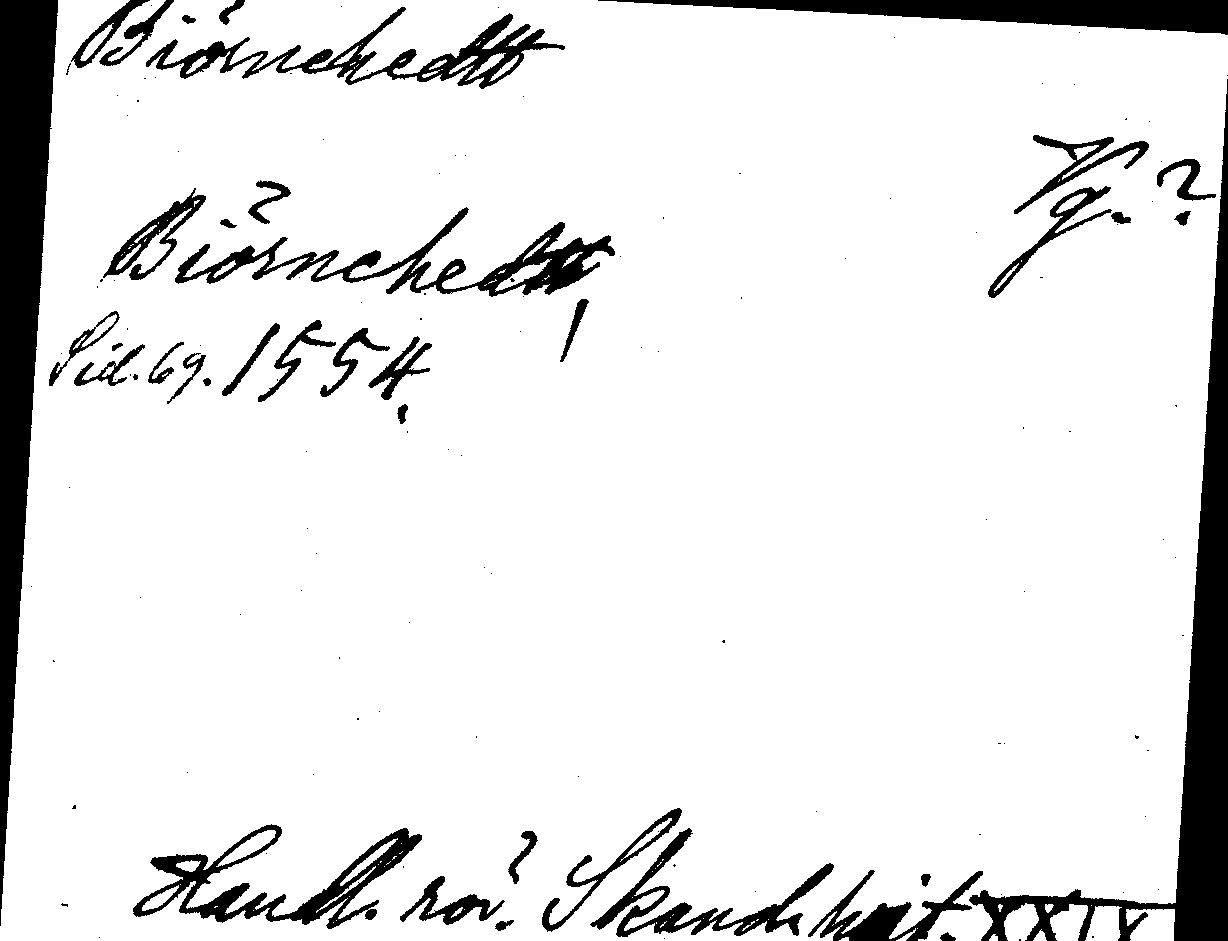 Biörnchedtt
Vg.?
Biörnchedtt
Sid. 69. 1554.
Handl. rör. Skand. hist. XXIX